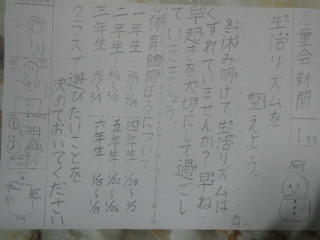 児童会新聞
1月号
生活リズムを
整えよう。
冬休み明けで生活リズムは
くずれていませんか？早ね
早起きを大切にして過ごし
ていきましょう。
体育館開ほうについて
一年生
二年生
三年生
四年生 1/28〜2/2
五年生 1/22〜1/26
六年生 1/15〜1/19
クラスで遊びたいことを
決めておいてください